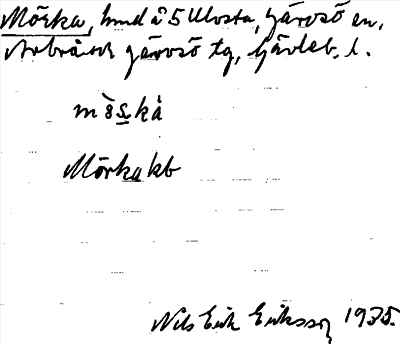 Mörka, hmd å 5 Ulvsta, Järvsö sn,
Arbrå och Järvsö tg, Gävleb. l.
mö̀s̠kå
Mörkakb
Nils Erik Eriksson 1935.